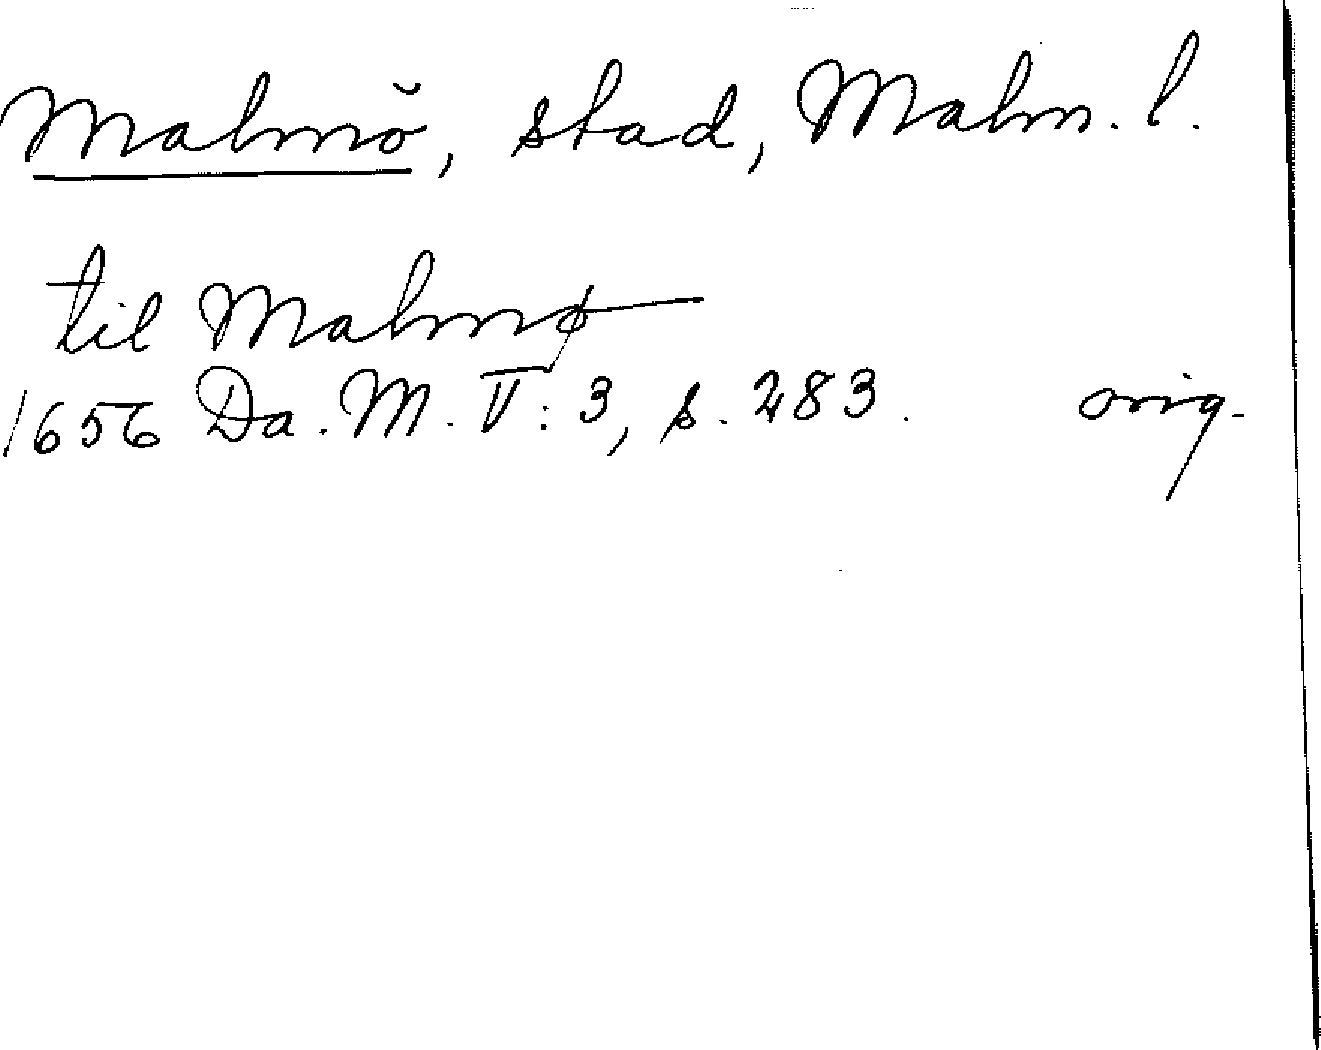 Malmö, stad, Malm. l.
til Malmø
1656 Da. M. V: 3, s. 283. orig.